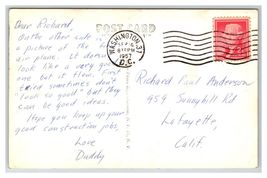 POST CARD
Dear Richard,
On the other side is
a picture of the
air plane. It doesn't
look like a very good
one but it flew. First
tried sometimes don't
"look so good" but they
can be good ideas.
Hope you keep up your
good construction jobs.
Love
Daddy
WASHINGTON
1957
D.C.
Richard Paul Anderson
959 Sunnyhill Rd
Lafayette,
Calif.